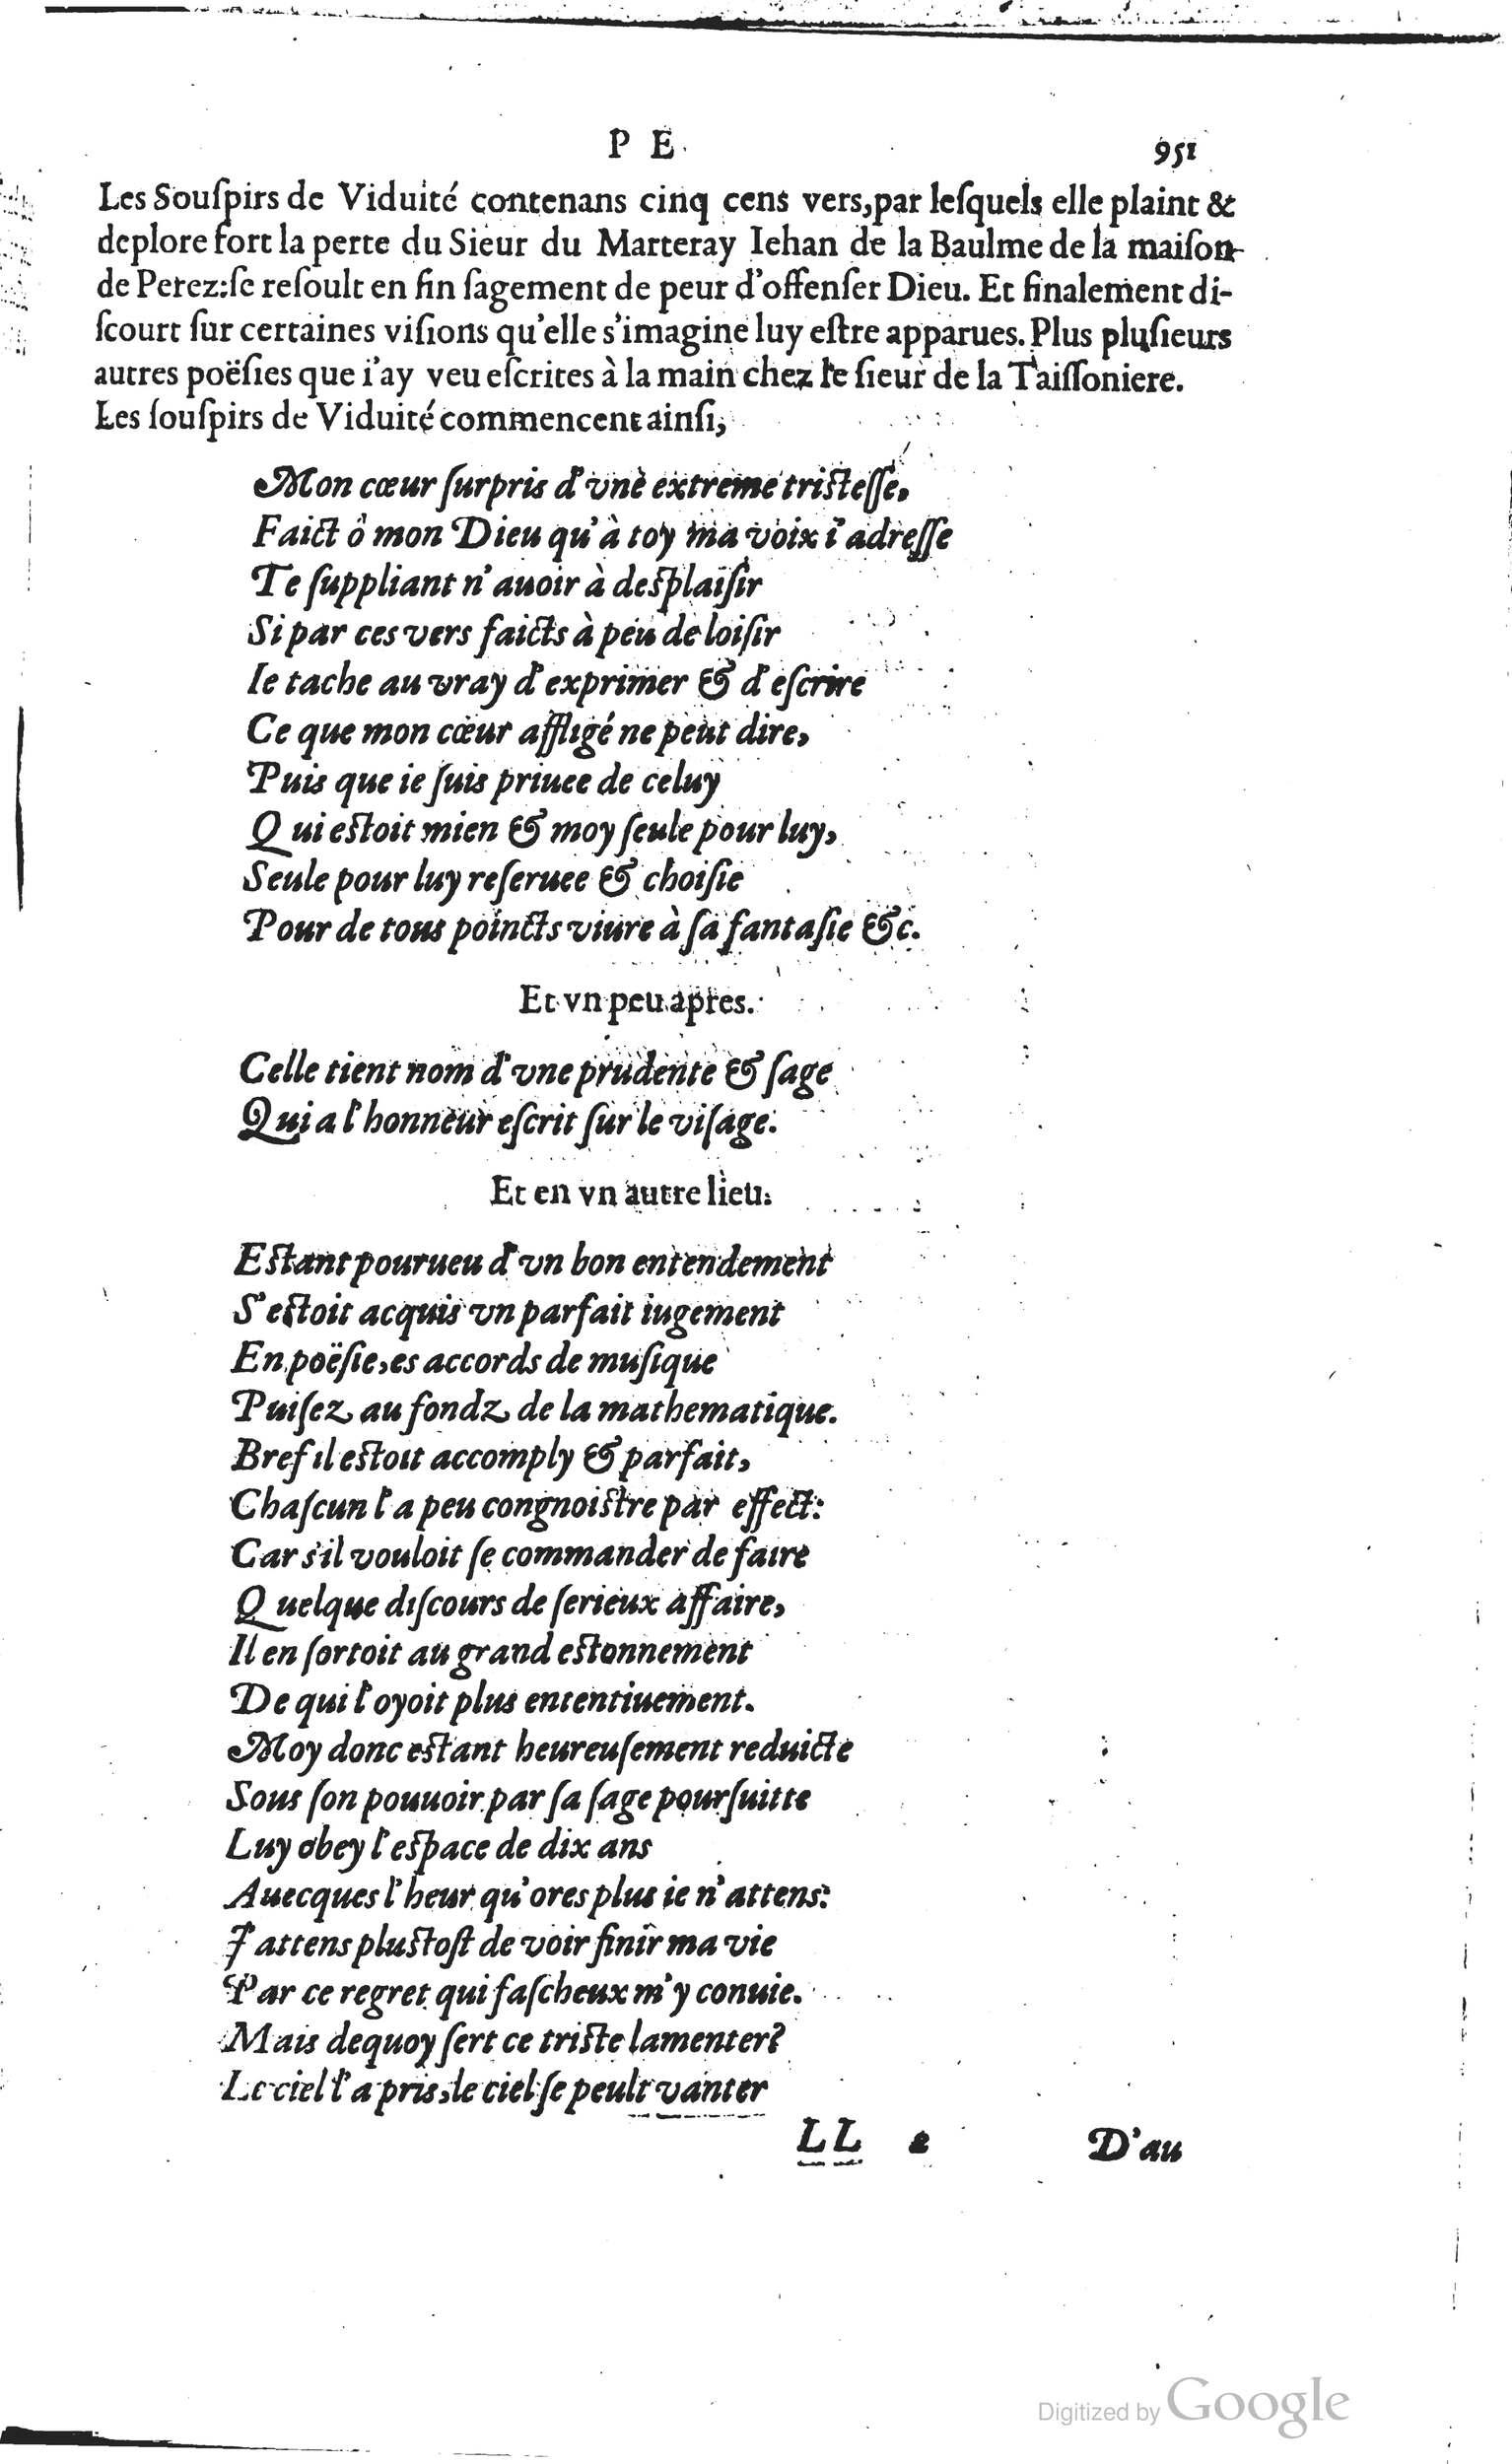 P E 951
Les Souſpirs de Viduité contenans cinq cens vers,par leſquels elle plaint &
deplore fort la perte du Sieur du Marteray Iehan de la Baulme de la maiſon
de Perez:ſe reſoult en fin ſagement de peur d'offenſer Dieu. Et finalement di-
ſcourt ſur certaines viſions qu'elle s'imagine luy eſtre apparues. Plus pluſieurs
autres poëſies que i'ay veu eſcrites à la main chez le ſieur de la Taiſſoniere.
Les ſouſpirs de Viduité commencent ainſi,
Mon cœur ſurpris d'vne extreme triſteſſe,
Faict ô mon Dieu qu'à toy ma voix i'adreſſe
Te ſuppliant n'auoir à deſplaiſir
Si par ces vers faicts à peu de loiſir
Ie tache au vray d'exprimer & d'eſcrire
Ce que mon cœur affligé ne peut dire,
Puis que ie ſuis priuee de celuy
Qui eſtoit mien & moy ſeule pour luy,
Seule pour luy reſeruee & choiſie
Pour de tous poincts viure à ſa fantaſie &c.
Et vn peu apres.
Celle tient nom d'vne prudente & ſage
Qui a l'honneur eſcrit ſur le viſage.
Et en vn autre lieu.
Eſtant pourueu d'vn bon entendement
S'eſtoit acquis vn parfait iugement
En poëſie,es accords de muſique
Puiſez au fondz de la mathematique.
Bref il eſtoit accomply & parfait,
Chaſcun l'a peu congnoiſtre par effect:
Car s'il vouloit ſe commander de faire
Quelque diſcours de ſerieux affaire,
Il en ſortoit au grand eſtonnement
De qui l'oyoit plus ententiuement.
Moy donc eſtant heureuſement reduicte
Sous ſon pouuoir par ſa ſage pourſuitte
Luy obey l'eſpace de dix ans
Auecques l'heur qu'ores plus ie n'attens:
J'attens pluſtoſt de voir finir ma vie
Par ce regret qui faſcheux m'y conuie.
Mais dequoy ſert ce triſte lamenter?
Le ciel l'a pris,le ciel ſe peult vanter
LL 2 D'au
Digitized by Google